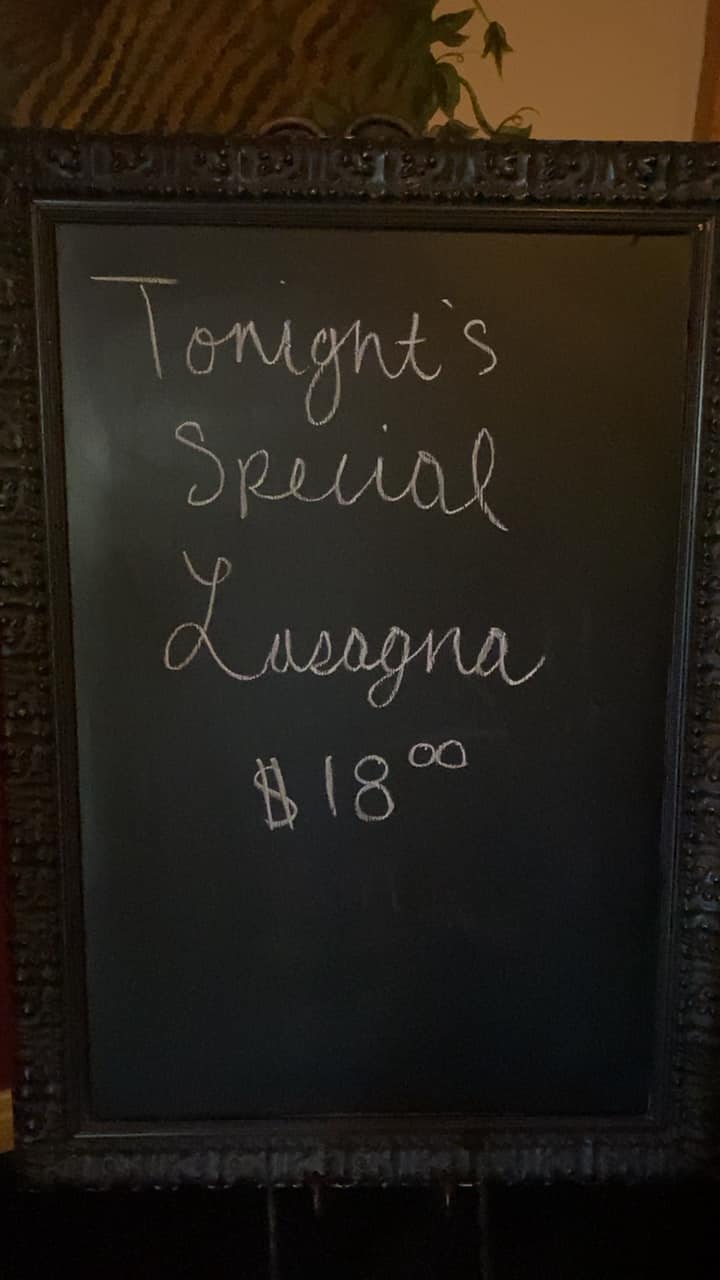 Tonight's
Special
Lasagna
$18⁰⁰